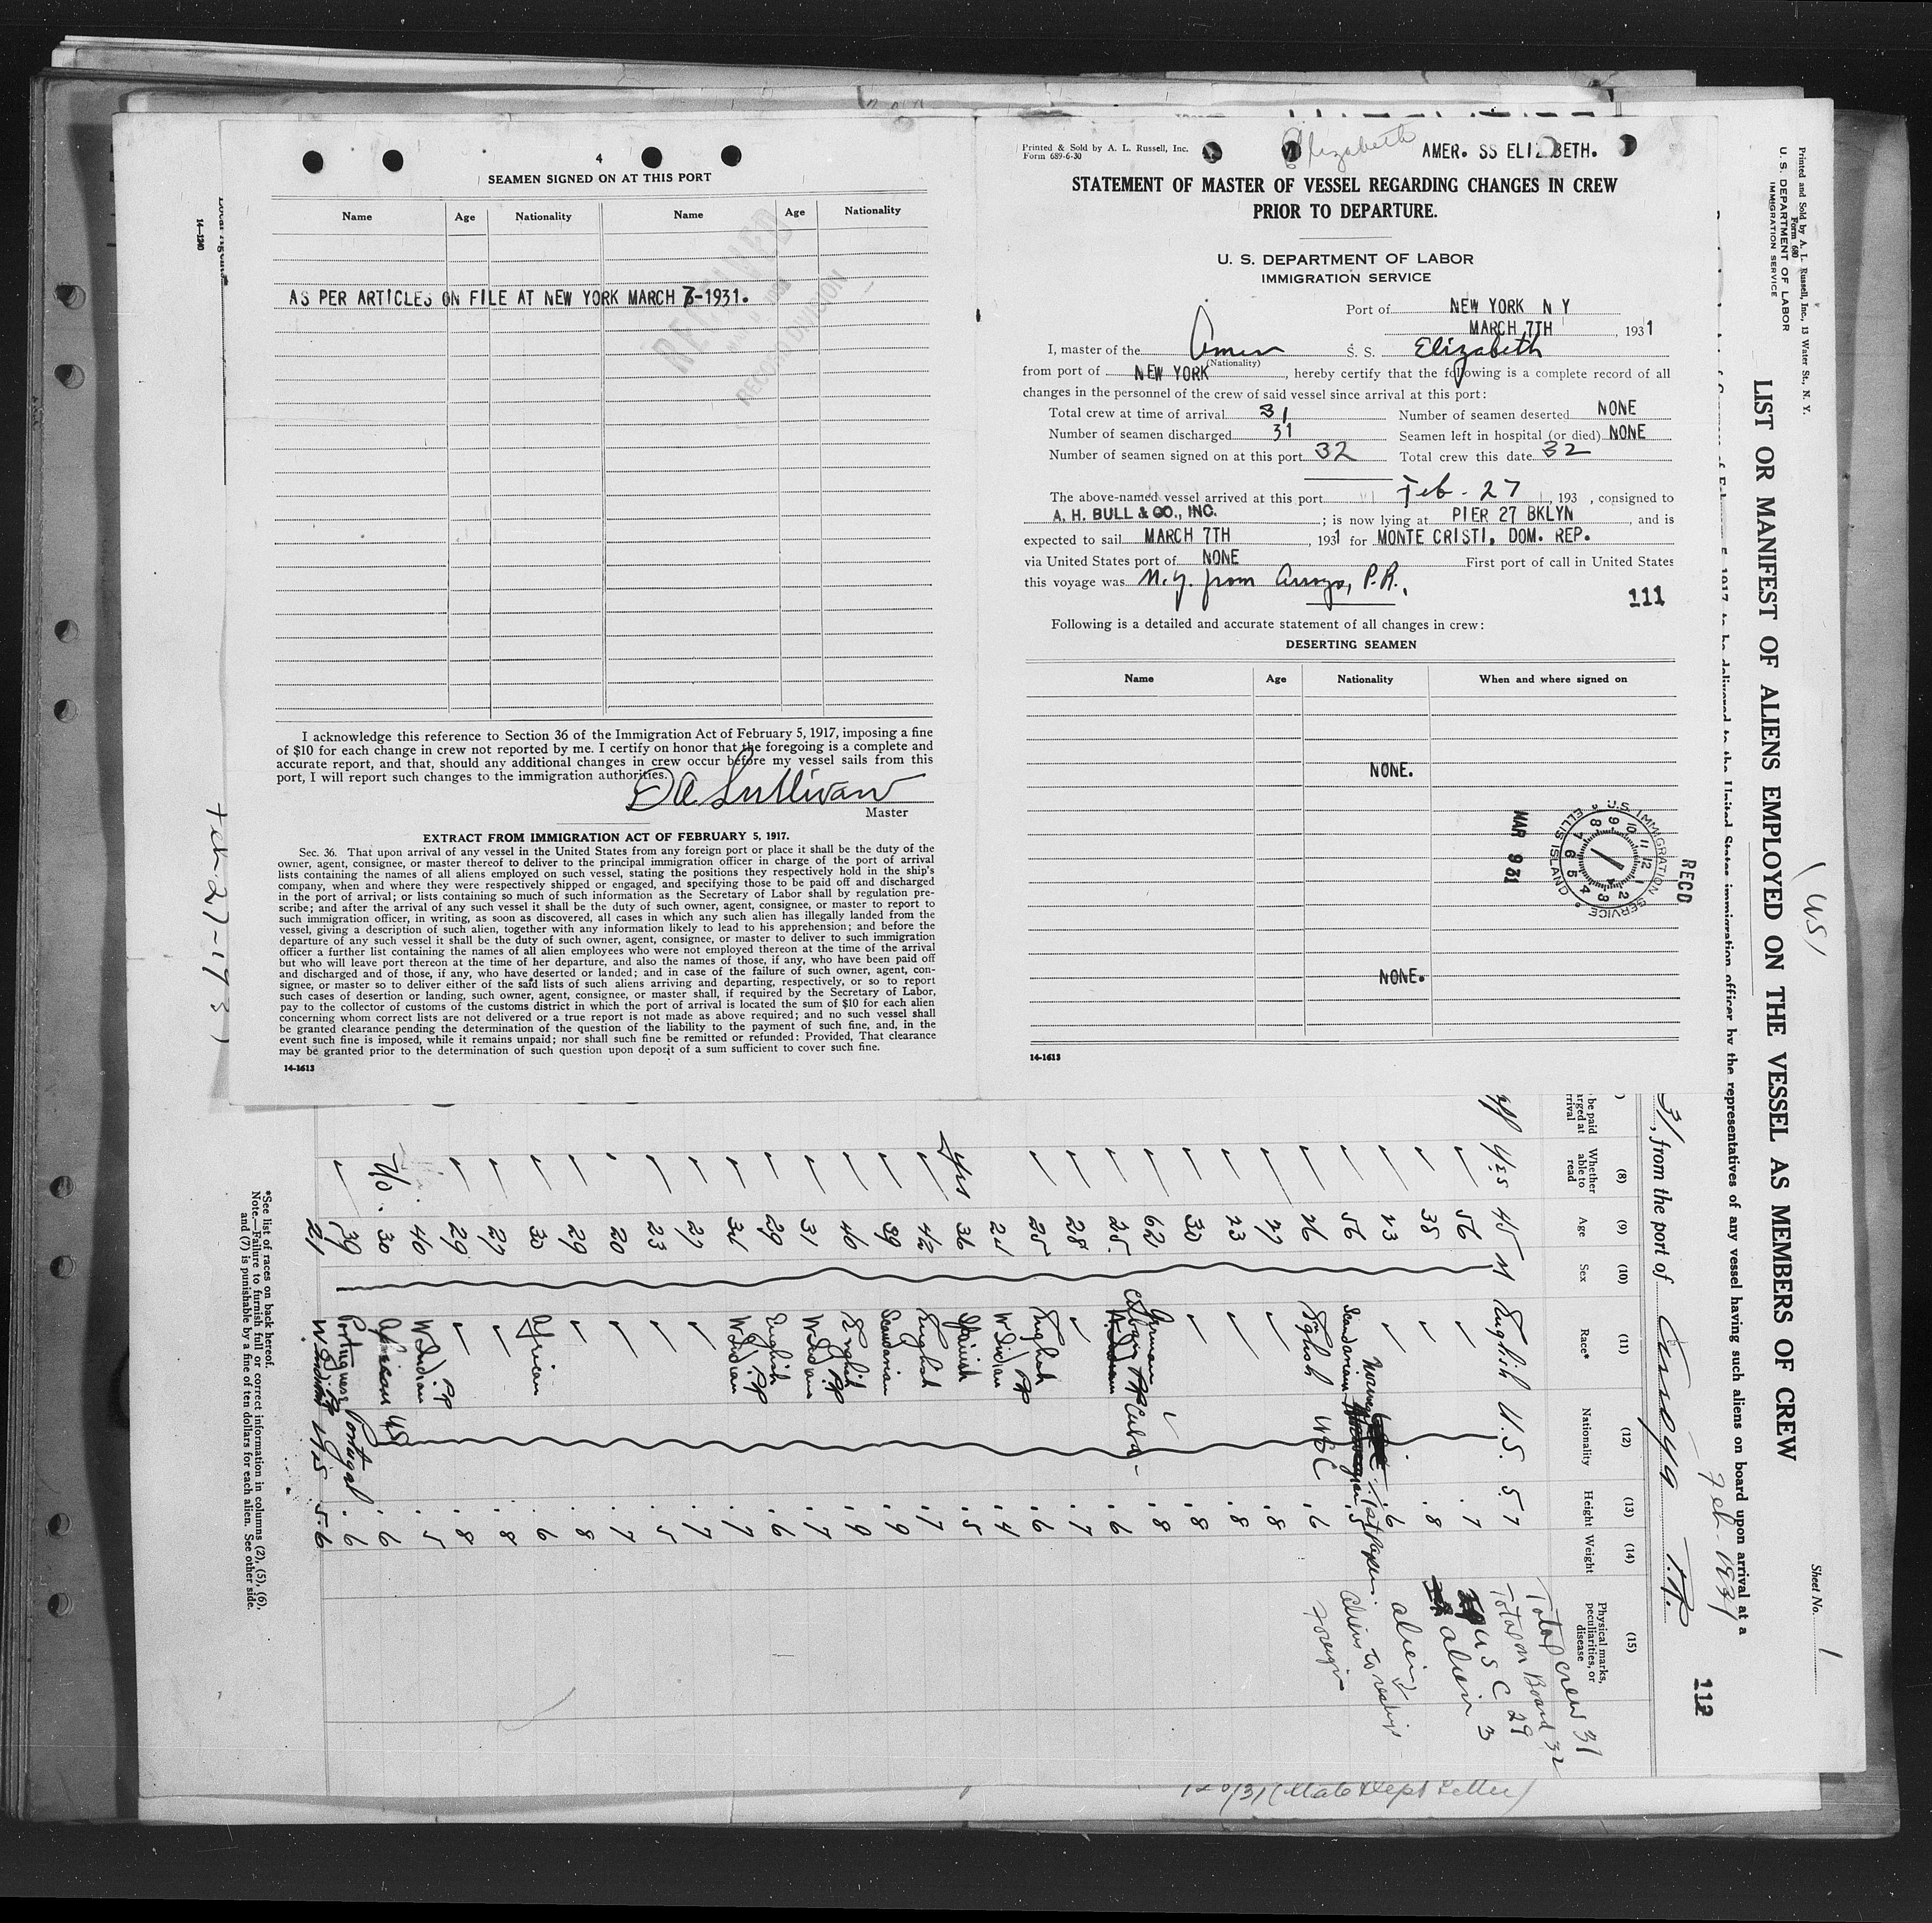 4
SEAMEN SIGNED ON AT THIS PORT
Name Age Nationality Name Age Nationality
AS PER ARTICLES ON FILE AT NEW YORK MARCH 7-1931.
RECORD DIVISION
I acknowledge this reference to Section 36 of the Immigration Act of February 5, 1917, imposing a fine
of $10 for each change in crew not reported by me. I certify on honor that the foregoing is a complete and
accurate report, and that, should any additional changes in crew occur before my vessel sails from this
port, I will report such changes to the immigration authorities.
D A Sullivan
Master
EXTRACT FROM IMMIGRATION ACT OF FEBRUARY 5, 1917.
Sec. 36. That upon arrival of any vessel in the United States from any foreign port or place it shall be the duty of the
owner, agent, consignee, or master thereof to deliver to the principal immigration officer in charge of the port of arrival
lists containing the names of all aliens employed on such vessel, stating the positions they respectively hold in the ship's
company, when and where they were respectively shipped or engaged, and specifying those to be paid off and discharged
in the port of arrival; or lists containing so much of such information as the Secretary of Labor shall by regulation pre-
scribe; and after the arrival of any such vessel it shall be the duty of such owner, agent, consignee, or master to report to
such immigration officer, in writing, as soon as discovered, all cases in which any such alien has illegally landed from the
vessel, giving a description of such alien, together with any information likely to lead to his apprehension; and before the
departure of any such vessel it shall be the duty of such owner, agent, consignee, or master to deliver to such immigration
officer a further list containing the names of all alien employees who were not employed thereon at the time of the arrival
but who will leave port thereon at the time of her departure, and also the names of those, if any, who have been paid off
and discharged and of those, if any, who have deserted or landed; and in case of the failure of such owner, agent, con-
signee, or master so to deliver either of the said lists of such aliens arriving and departing, respectively, or so to report
such cases of desertion or landing, such owner, agent, consignee, or master shall, if required by the Secretary of Labor,
pay to the collector of customs of the customs district in which the port of arrival is located the sum of $10 for each alien
concerning whom correct lists are not delivered or a true report is not made as above required; and no such vessel shall
be granted clearance pending the determination of the question of the liability to the payment of such fine, and, in the
event such fine is imposed, while it remains unpaid; nor shall such fine be remitted or refunded: Provided, That clearance
may be granted prior to the determination of such question upon deposit of a sum sufficient to cover such fine.
14-1613
14-1240
Feb-27-1931
Printed & Sold by A. L. Russell, Inc.
Form 689-6-30
Elizabeth
AMER. SS ELIZABETH.
STATEMENT OF MASTER OF VESSEL REGARDING CHANGES IN CREW
PRIOR TO DEPARTURE.
U. S. DEPARTMENT OF LABOR
IMMIGRATION SERVICE
Port of NEW YORK N Y
MARCH 7TH, 1931
I, master of the Amer S. S. Elizabeth
(Nationality)
from port of NEW YORK, hereby certify that the following is a complete record of all
changes in the personnel of the crew of said vessel since arrival at this port:
Total crew at time of arrival 31 Number of seamen deserted NONE
Number of seamen discharged 31 Seamen left in hospital (or died) NONE
Number of seamen signed on at this port 32 Total crew this date 32
The above-named vessel arrived at this port Feb-27, 193 , consigned to
A. H. BULL & CO., INC. ; is now lying at PIER 27 BKLYN, and is
expected to sail MARCH 7TH, 1931 for MONTE CRISTI, DOM. REP.
via United States port of NONE First port of call in United States
this voyage was N.Y. from Arroyo, P.R.,
111
Following is a detailed and accurate statement of all changes in crew:
DESERTING SEAMEN
Name Age Nationality When and where signed on
NONE.
NONE.
14-1613
RECD
U.S. IMMIGRATION SERVICE ELLIS ISLAND
MAR 9 31
Printed and Sold by A. L. Russell, Inc., 13 Water St., N. Y.
Form 680
U. S. DEPARTMENT OF LABOR
IMMIGRATION SERVICE
Sheet No. 1
LIST OR MANIFEST OF ALIENS EMPLOYED ON THE VESSEL AS MEMBERS OF CREW
112
to be delivered to the United States immigration officer by the representatives of any vessel having such aliens on board upon arrival at a
31, from the port of Arroyo P.R.
Feb-1931
(8) (9) (10) (11) (12) (13) (14) (15)
Whether able to read Age Sex Race* Nationality Height Weight Physical marks, peculiarities, or disease
Yes 45 M English U.S. 5 7
56 7
38 8
23 6
56 Scandavian 5
26 English USC 6
27 8
23 8
30 8
62 German 8
25 Cuban Cuba 6
28 7
25 English 6
24 W Indian 4
Yes 36 Spanish 5
42 English 7
39 Scandavian 9
40 English 9
31 W Indian 7
29 English 6
34 W Indian 7
27 7
23 5
20 7
29 8
30 African 6
27 8
29 8
40 W Indian 5
No. 30 African US 6
39 Portuguese Portugal 6
21 5 6
Total crew 31
Total on Board 32
USC 29
alien 3
*See list of races on back hereof.
Note.—Failure to furnish full or correct information in columns (2), (5), (6),
and (7) is punishable by a fine of ten dollars for each alien. See other side.
(State Dept Letter)